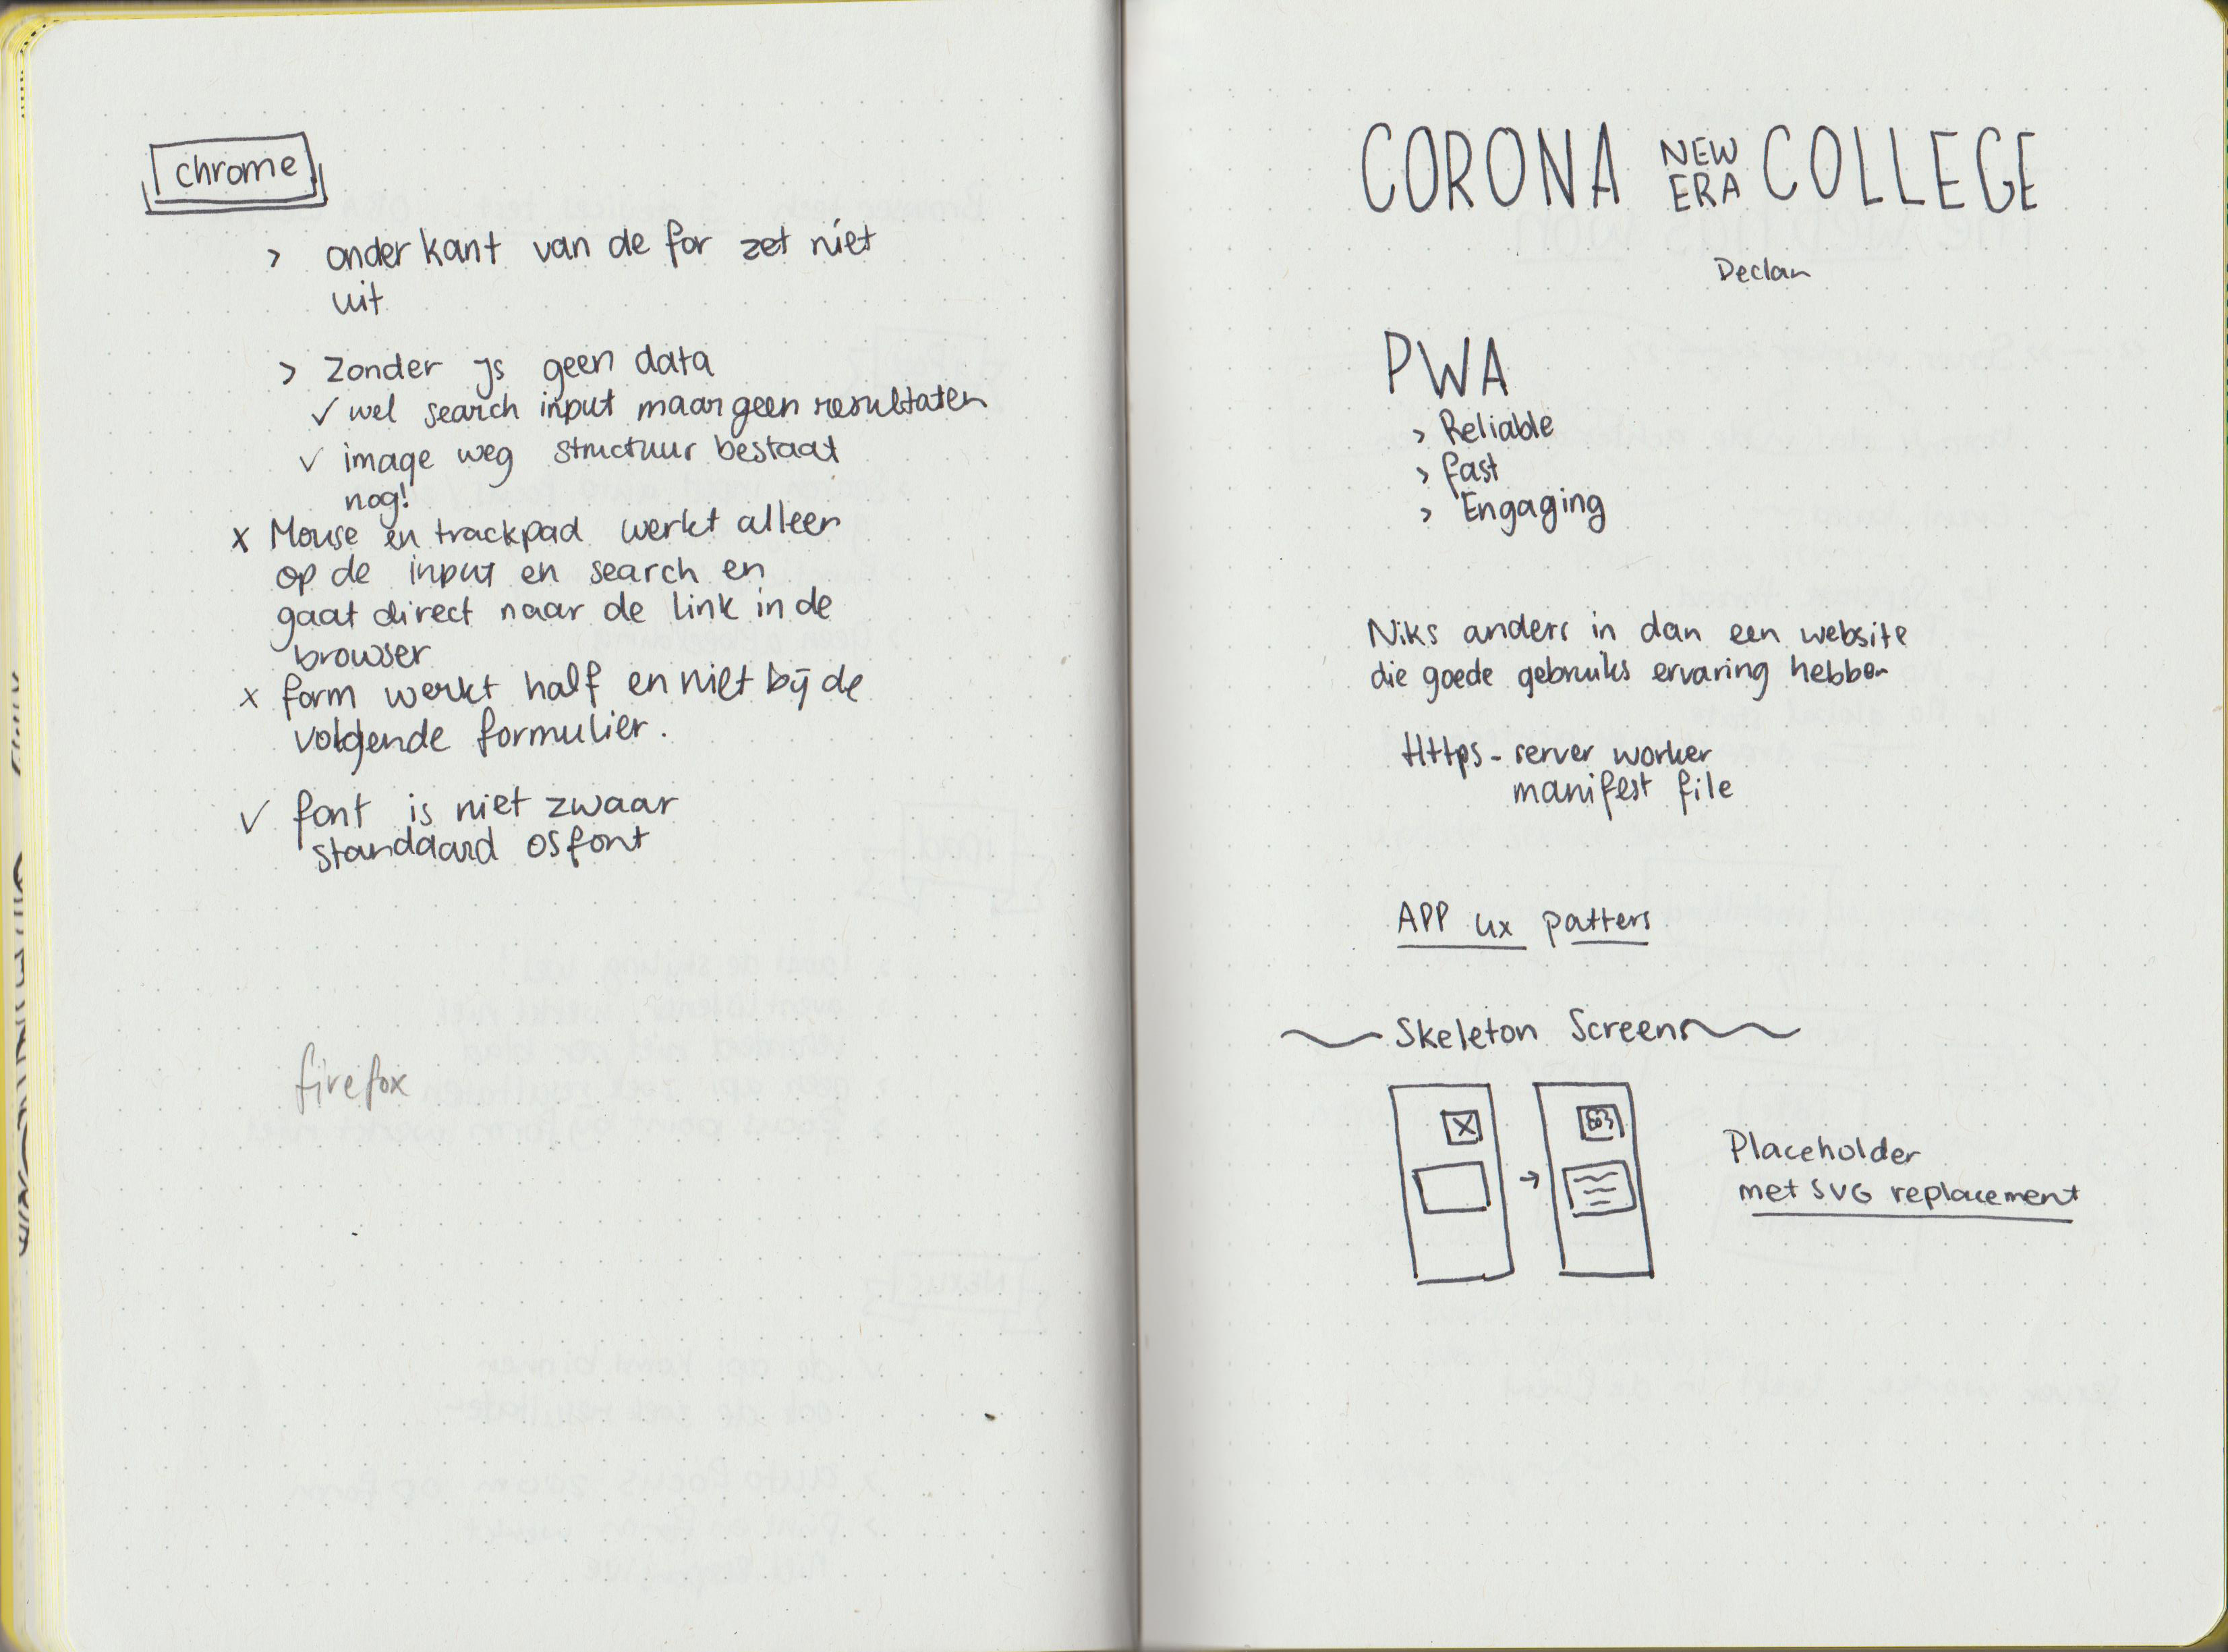 chrome
> onderkant van de for zet niet
uit
> Zonder js geen data
✓ wel search input maar geen resultaten
✓ image weg structuur bestaat
nog!
x Mouse en trackpad werkt alleen
op de input en search en
gaat direct naar de link in de
browser
x form werkt half en niet bij de
volgende formulier.
✓ font is niet zwaar
standaard os font
firefox
CORONA NEW ERA COLLEGE
Declan
PWA
> Reliable
> fast
> Engaging
Niks anders in dan een website
die goede gebruiks ervaring hebben
Https - server worker
manifest file
APP ux patters
Skeleton Screens
Placeholder
met SVG replacement